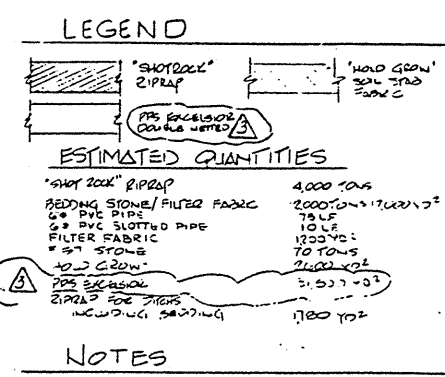 LEGEND
"SHOTROCK" RIPRAP
"HOLD GROW" SOIL STAB FABRIC
PPS EXCELSIOR
DOUBLE NETTED 3
ESTIMATED QUANTITIES
"SHOT ROCK" RIPRAP 4,000 TONS
BEDDING STONE/FILTER FABRIC
6" PVC PIPE 75 LF
6" PVC SLOTTED PIPE 10 LF
FILTER FABRIC
#57 STONE 70 TONS
HOLD GROW
3 PPS EXCELSIOR
RIPRAP FOR
INCLUDING BEDDING 1780 YD²
NOTES